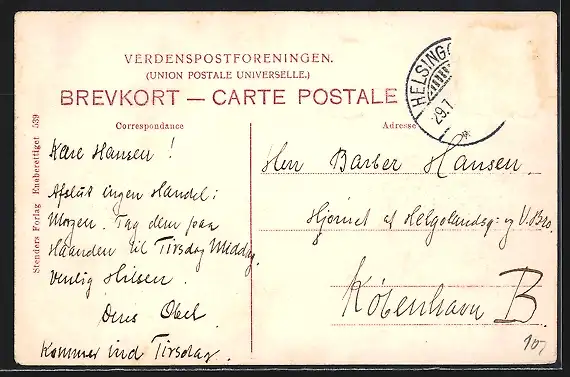 VERDENSPOSTFORENINGEN.
(UNION POSTALE UNIVERSELLE.)
BREVKORT — CARTE POSTALE
HELSINGØ
29.7
Correspondance
Adresse
Kære Hansen!
Afslut ingen Handel i
Morgen. Tag dem paa
Haanden til Tirsdag Middag.
Venlig Hilsen.
Deres
Kommer ind Tirsdag.
Herr Barber Hansen.
Hjørnet af Helgolandsg: og V. Bro.
København B
10,
Stenders Forlag Eneberettiget 539